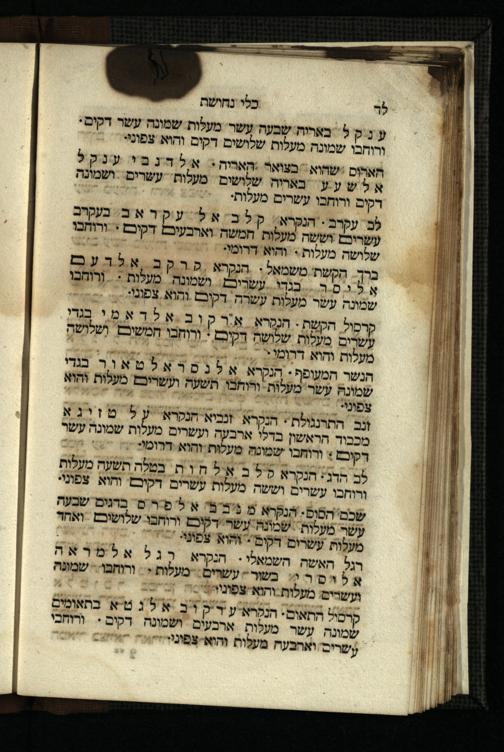 לד
כלי נחושת
ענקל באריה שבעה עשר מעלות שמונה עשר דקים·
ורוחבו שמונה מעלות שלושים דקים והוא צפוני·
האדום שהוא בצואר האריה· אלדנבי ענקל
אלשעע באריה שלושים מעלות עשרים ושמונה
דקים ורוחבו עשרים מעלות·
לב עקרב· הנקרא קלב אל עקראב בעקרב
עשרים וששה מעלות חמשה וארבעים דקים· ורוחבו
שלושה מעלות· והוא דרומי·
ברך הקשת משמאל· הנקרא קרקב אלדעם
אליסר בגדי עשרים ושמונה מעלות· ורוחבו
שמונה עשר מעלות עשרה דקים והוא צפוני·
קרסול הקשת· הנקרא ארקוב אלדאמי בגדי
עשרים מעלות שלושה דקים· ורוחבו חמשים ושלושה
מעלות והוא דרומי·
הנשר המעופף· הנקרא אלנסראלטאור בגדי
שמונה עשר מעלות ורוחבו תשעה ועשרים מעלות והוא
צפוני·
זנב התרנגולת· הנקרא זנביא הנקרא על טזיגא
מכבוד הראשון בדלי ארבעה ועשרים מעלות שמונה עשר
דקים· ורוחבו שמונה מעלות והוא דרומי·
לב הדג· הנקרא קלבאלחות בטלה תשעה מעלות
ורוחבו עשרים וששה מעלות עשרים דקים והוא צפוני·
שכם הסוס· הנקרא מנכב אלפרס בדגים שבעה
עשר מעלות שמונה עשר דקים ורוחבו שלושים ואחד
מעלות עשרים דקים· והוא צפוני·
רגל האשה השמאלי· הנקרא רגל אלמראה
אליסרי בשור עשרים מעלות· ורוחבו שמונה
ועשרים מעלות והוא צפוני·
קרסול התאום· הנקרא עדקוב אלגטא בתאומים
שמונה עשר מעלות ארבעים ושמונה דקים· ורוחבו
עשרים וארבעה מעלות והוא צפוני·